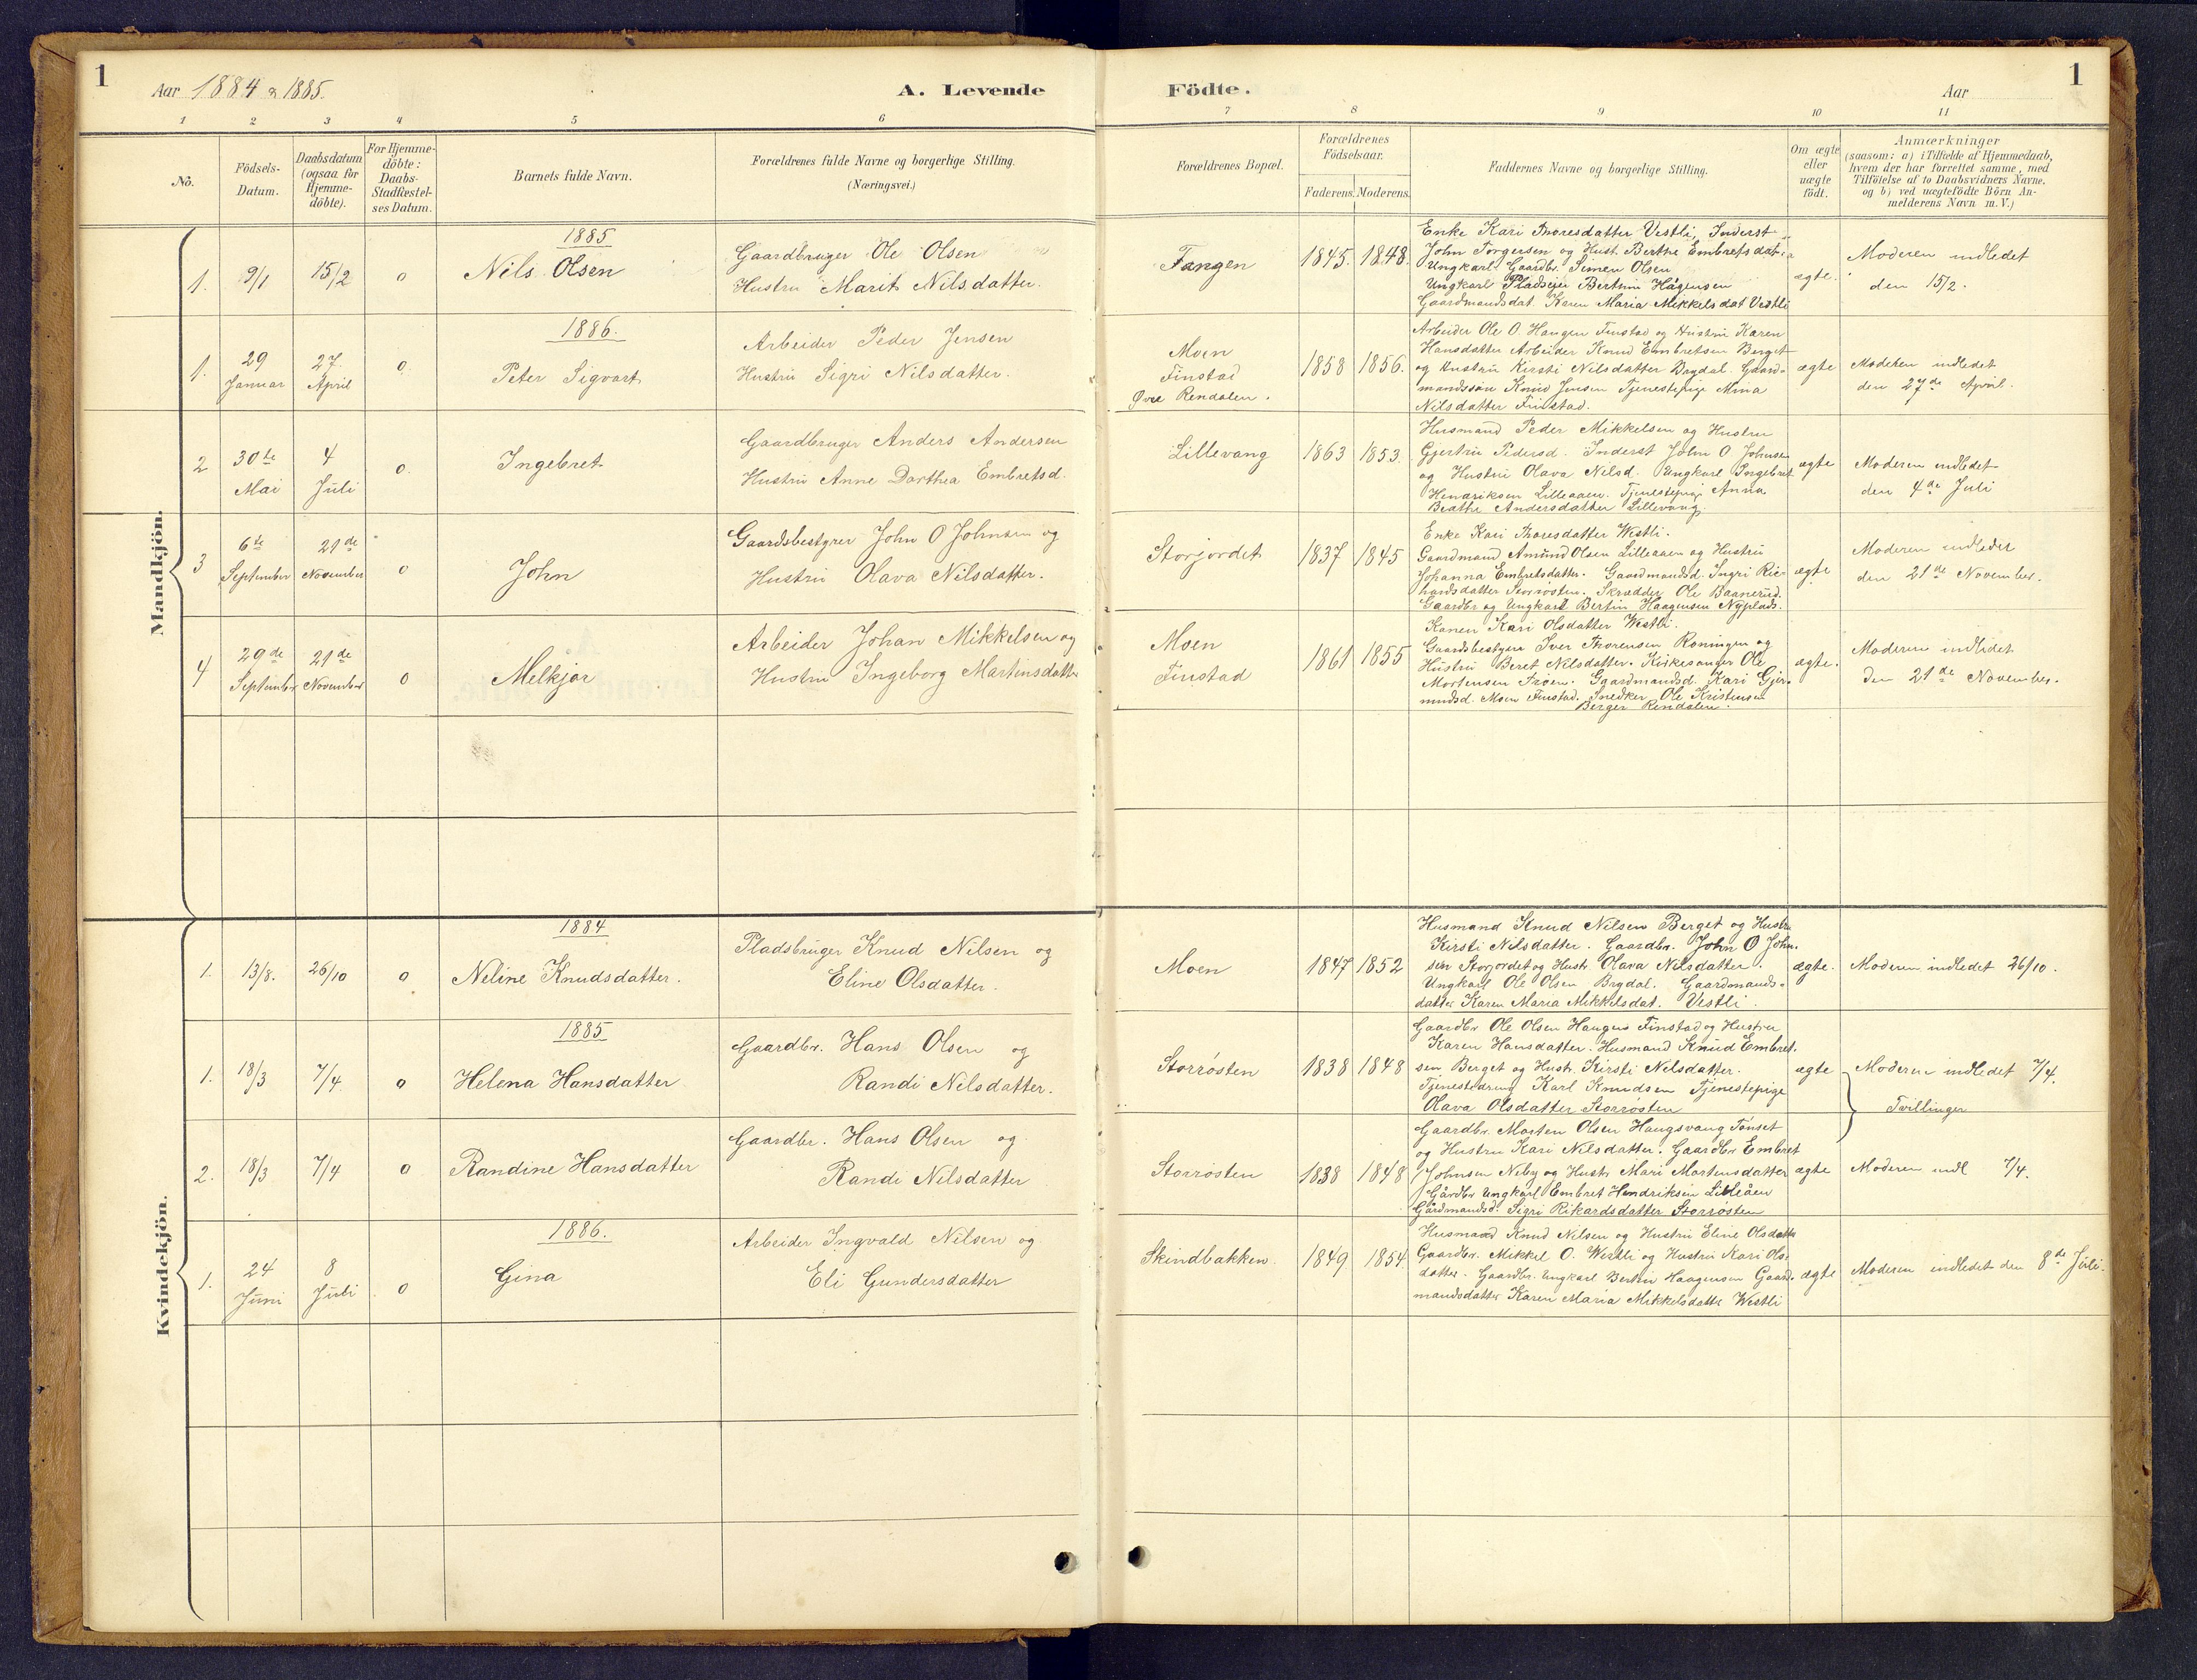 1
Aar 1884 & 1885.
A. Levende
Födte.
Aar
1
1 2 3 4 5 6
7 8 9 10 11
No.
Födsels-
Datum.
Daabsdatum
(ogsaa for
Hjemme-
döbte).
For Hjemme-
döbte:
Daabs-
Stadfæstel-
ses Datum.
Barnets fulde Navn.
Forældrenes fulde Navne og borgerlige Stilling.
(Næringsvei.)
Forældrenes Bopæl.
Forældrenes
Födselsaar.
Faderens. Moderens.
Faddernes Navne og borgerlige Stilling.
Om ægte
eller
uægte
födt.
Anmærkninger
(saasom: a) i Tilfælde af Hjemmedaab,
hvem der har forrettet samme, med
Tilföielse af to Daabsvidners Navne,
og b) ved uægtefödte Börn An-
melderens Navn m. V.)
Mandkjön.
1885
1. 9/1 15/2 0 Nils Olsen
Gaardbruger Ole Olsen
Hustru Marit Nilsdatter.
Fangen
1845. 1848.
Enke Kari Thoresdatter Vestli, Inderst
John Torgersen og Hust. Berthe Embretsdat
Ungkarl Gaardbr. Simen Olsen
Ungkarl Pladseier Bertin Hågensen
Gaardmandsdat. Karen Maria Mikkelsdat Vestli
ægte.
Moderen indledet
den 15/2.
1886.
1. 29 Januar 27. April 0. Peter Sigvart
Arbeider Peder Jensen
Hustru Sigri Nilsdatter.
Moen
Finstad
Øvre Rendalen.
1858 1856.
Arbeider Ole O. Haugen Finstad og Hustru Karen
Hansdatter Arbeider Knud Embretsen Berget
og Hustru Kirsti Nilsdatter Brydal. Gaard-
mandssøn Knud Jensen Tjenestepige Mina
Nilsdatter Finstad.
ægte
Moderen indledet
den 27de April.
2 30te Mai 4 Juli 0. Ingebret
Gaardbruger Anders Andersen
Hustru Anne Dorthea Embretsd.
Lillevang
1863 1853.
Husmand Peder Mikkelsen og Hustru
Gjertru Pedersd. Inderst John O Johnsen
og Hustru Olava Nilsd. Ungkarl Ingebret
Hendriksen Lilleaaen. Tjenestepig Anna
Beathe Andersdatter Lillevang.
ægte
Moderen indledet
den 4de Juli
3 6te September 21de November 0 John
Gaardsbestyrer John O Johnsen og
Hustru Olava Nilsdatter.
Storjordet
1837 1845
Enke Kari Thoresdatter Westli.
Gaardmand Amund Olsen Lilleaaen og Hustru
Johanna Embretsdatter. Gaardmandsd. Ingri Ric-
hardsdatter Storrøsten. Skrædder Ole Baanerud.
Gaardbr og Ungkarl Bertin Haagensen Nyplads.
ægte
Moderen indledet
den 21de November.
4 29de September 21de November 0 Melkjor
Arbeider Johan Mikkelsen og
Hustru Ingeborg Martinsdatter
Moen
Finstad
1861 1855
Konen Kari Olsdatter Westli.
Gaardsbestyrer Iver Thoresen Roningen og
Hustru Beret Nilsdatter. Kirkesanger Ole
Mortensen Frøen. Gaardmandsd. Kari Gjer-
mundsd. Moen Finstad. Snedker Ole Kristensen
Berger Rendalen.
ægte.
Moderen indledet
den 21de November.
Kvindekjön.
1884
1. 13/8. 26/10 0 Neline Knudsdatter.
Pladsbruger Knud Nilsen og
Eline Olsdatter.
Moen
1847 1852
Husmand Knud Nilsen Berget og Hustru
Kirsti Nilsdatter. Gaardbr. John O John-
sen Storjordet og Hustr. Olava Nilsdatter.
Ungkarl Ole Olsen Brydal. Gaardmands-
datter Karen Maria Mikkelsdat. Vestli.
ægte.
Moderen indledet 26/10.
1885
1. 18/3 7/4 0 Helena Hansdatter
Gaardbr. Hans Olsen og
Randi Nilsdatter.
Storrösten
1838 1848
Gaardbr. Ole Olsen Haugen Finstad og Hustru
Karen Hansdatter. Husmand Knud Embret-
sen Berget og Hustr. Kirsti Nilsdatter.
Tjenestedreng Karl Knudsen Tjenestepige
Olava Olsdatter Storrösten
ægte
Moderen indledet 7/4.
Tvillinger
2. 18/3 7/4 0 Randine Hansdatter
Gaardbr. Hans Olsen og
Randi Nilsdatter
Storrösten
1838 1848
Gaardbr. Morten Olsen Haugsvang Tönset
og Hustru Kari Nilsdatter. Gaardbr Embret
Johnsen Neby og Hustr. Mari Mortensdatter
Gårdbr Ungkarl Embret Hendriksen Lilleåen
Gårdmandsd. Sigri Rikardsdatter Storrösten
ægte
Moderen indl 7/4.
1886.
1. 24 Juni 8 Juli 0 Gina
Arbeider Ingvald Nilsen og
Eli Gundersdatter
Skindbakken
1849 1854.
Husmand Knud Nilsen og Hustru Eline Olsdatter
Gaardbr. Mikkel O. Westli og Hustru Kari Ols-
datter. Gaardbr. Ungkarl Bertin Haagensen Gaard-
mandsdatter Karen Maria Mikkelsdatter Westli
ægte
Moderen indledet den 8de Juli.